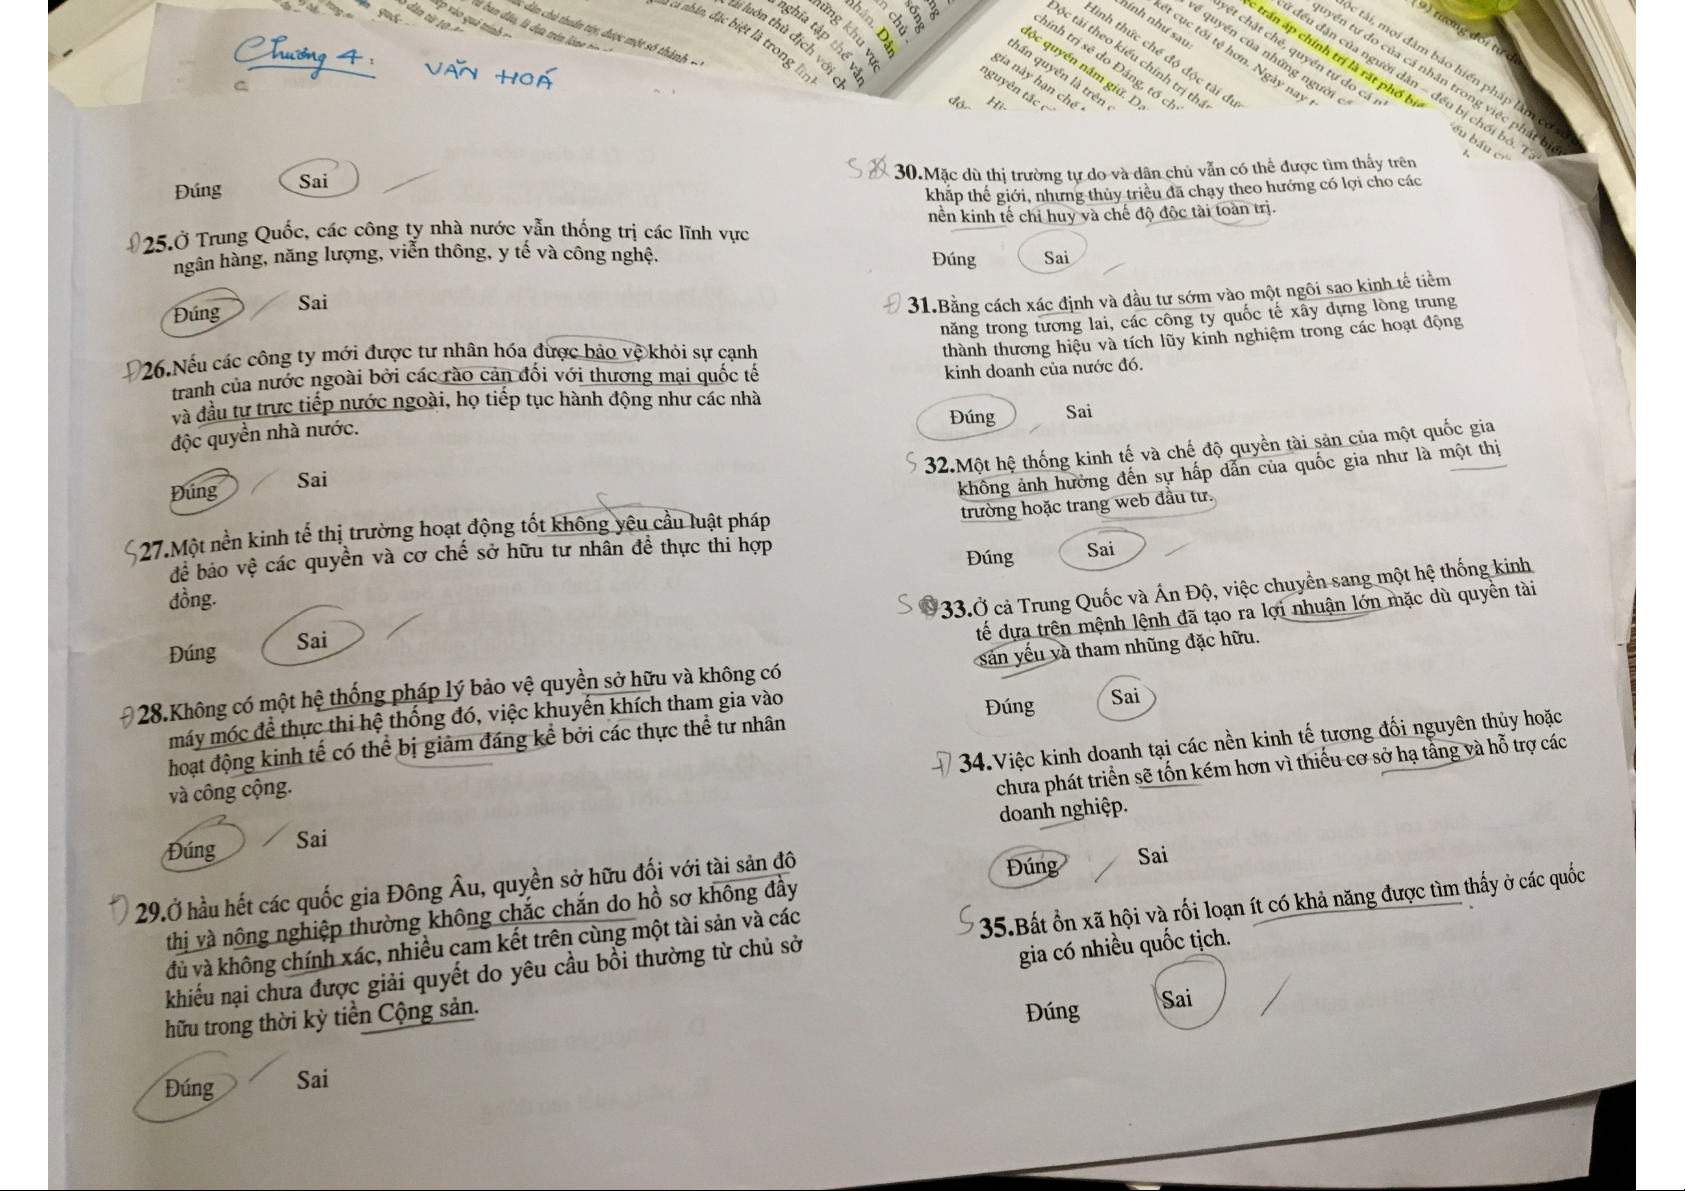 Chương 4:
VĂN HOÁ
Đúng Sai
Đ 25.Ở Trung Quốc, các công ty nhà nước vẫn thống trị các lĩnh vực
ngân hàng, năng lượng, viễn thông, y tế và công nghệ.
Đúng Sai
Đ 26.Nếu các công ty mới được tư nhân hóa được bảo vệ khỏi sự cạnh
tranh của nước ngoài bởi các rào cản đối với thương mại quốc tế
và đầu tư trực tiếp nước ngoài, họ tiếp tục hành động như các nhà
độc quyền nhà nước.
Đúng Sai
S 27.Một nền kinh tế thị trường hoạt động tốt không yêu cầu luật pháp
để bảo vệ các quyền và cơ chế sở hữu tư nhân để thực thi hợp
đồng.
Đúng Sai
Đ 28.Không có một hệ thống pháp lý bảo vệ quyền sở hữu và không có
máy móc để thực thi hệ thống đó, việc khuyến khích tham gia vào
hoạt động kinh tế có thể bị giảm đáng kể bởi các thực thể tư nhân
và công cộng.
Đúng Sai
Đ 29.Ở hầu hết các quốc gia Đông Âu, quyền sở hữu đối với tài sản đô
thị và nông nghiệp thường không chắc chắn do hồ sơ không đầy
đủ và không chính xác, nhiều cam kết trên cùng một tài sản và các
khiếu nại chưa được giải quyết do yêu cầu bồi thường từ chủ sở
hữu trong thời kỳ tiền Cộng sản.
Đúng Sai
S 30.Mặc dù thị trường tự do và dân chủ vẫn có thể được tìm thấy trên
khắp thế giới, nhưng thủy triều đã chạy theo hướng có lợi cho các
nền kinh tế chỉ huy và chế độ độc tài toàn trị.
Đúng Sai
Đ 31.Bằng cách xác định và đầu tư sớm vào một ngôi sao kinh tế tiềm
năng trong tương lai, các công ty quốc tế xây dựng lòng trung
thành thương hiệu và tích lũy kinh nghiệm trong các hoạt động
kinh doanh của nước đó.
Đúng Sai
S 32.Một hệ thống kinh tế và chế độ quyền tài sản của một quốc gia
không ảnh hưởng đến sự hấp dẫn của quốc gia như là một thị
trường hoặc trang web đầu tư.
Đúng Sai
S 33.Ở cả Trung Quốc và Ấn Độ, việc chuyển sang một hệ thống kinh
tế dựa trên mệnh lệnh đã tạo ra lợi nhuận lớn mặc dù quyền tài
sản yếu và tham nhũng đặc hữu.
Đúng Sai
Đ 34.Việc kinh doanh tại các nền kinh tế tương đối nguyên thủy hoặc
chưa phát triển sẽ tốn kém hơn vì thiếu cơ sở hạ tầng và hỗ trợ các
doanh nghiệp.
Đúng Sai
S 35.Bất ổn xã hội và rối loạn ít có khả năng được tìm thấy ở các quốc
gia có nhiều quốc tịch.
Đúng Sai